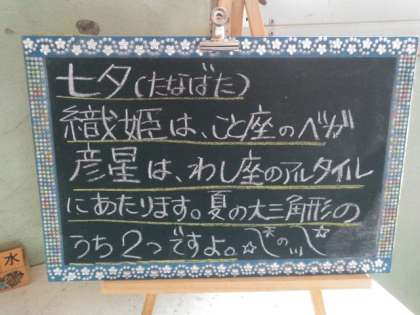 七夕(たなばた)
織姫は、こと座のベガ
彦星は、わし座のアルタイル
にあたります。夏の大三角形の
うち2つですよ。☆
水